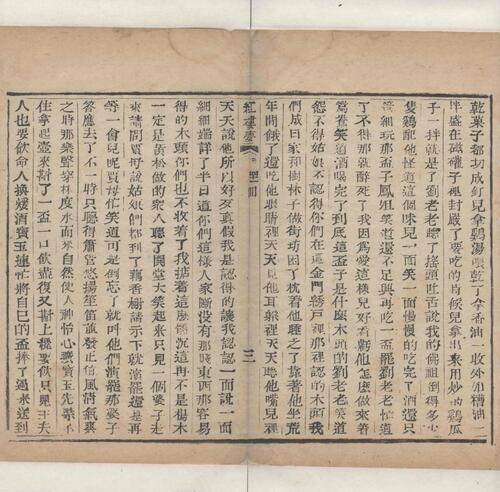 乾菓子都切成釘兒拿鷄湯喂乾了拿香油一收外加糟油一
拌盛在磁罐子裡封嚴了要吃的時候兒拿出來用炒的鷄瓜
子一拌就是了劉老老聽了搖頭吐舌說我的佛祖倒得多少
隻鷄配他怪道這個味兒一面笑一面慢慢的吃完了酒還只
管細玩那盃子鳳姐笑道還不足興再吃一盃罷劉老老忙道
了不得那就醉死了我因爲愛這樣兒好看虧他怎麼做來着
鴛鴦笑道酒喝完了到底這盃子是什麼木頭的劉老老笑道
怨不得姑娘不認得你們在這金門綉戶裡那裡認的木頭我
們成日家和樹林子做街坊困了枕着他睡乏了靠着他坐荒
年間餓了還吃他眼睛裡天天見他耳躱裡天天聽他嘴兒裡
紅樓夢 囘 三
天天說他所以好歹真假我是認得的讓我認認一面說一面
細細端詳了半日道你們這樣人家斷沒有那賤東西那容易
得的木頭你們也不收着了我掂着這麼體沉這再不是楊木
一定是黃松做的衆人聽了閧堂大笑起來只見一個婆子走
來請問賈母說姑娘們都到了藕香榭請示下就演罷還是再
等一會兒呢賈母忙笑道可是倒忘了就叫他們演罷那婆子
答應去了不一時只聽得簫管悠揚笙笛並發正值風清氣爽
之時那樂聲穿林度水而來自然使人神怡心曠寳玉先禁不
住拿起壺來斟了一盃一口飲盡復又斟上纔要飲只見王夫
人也要飲命人換煖酒寳玉連忙將自己的盃捧了過來送到